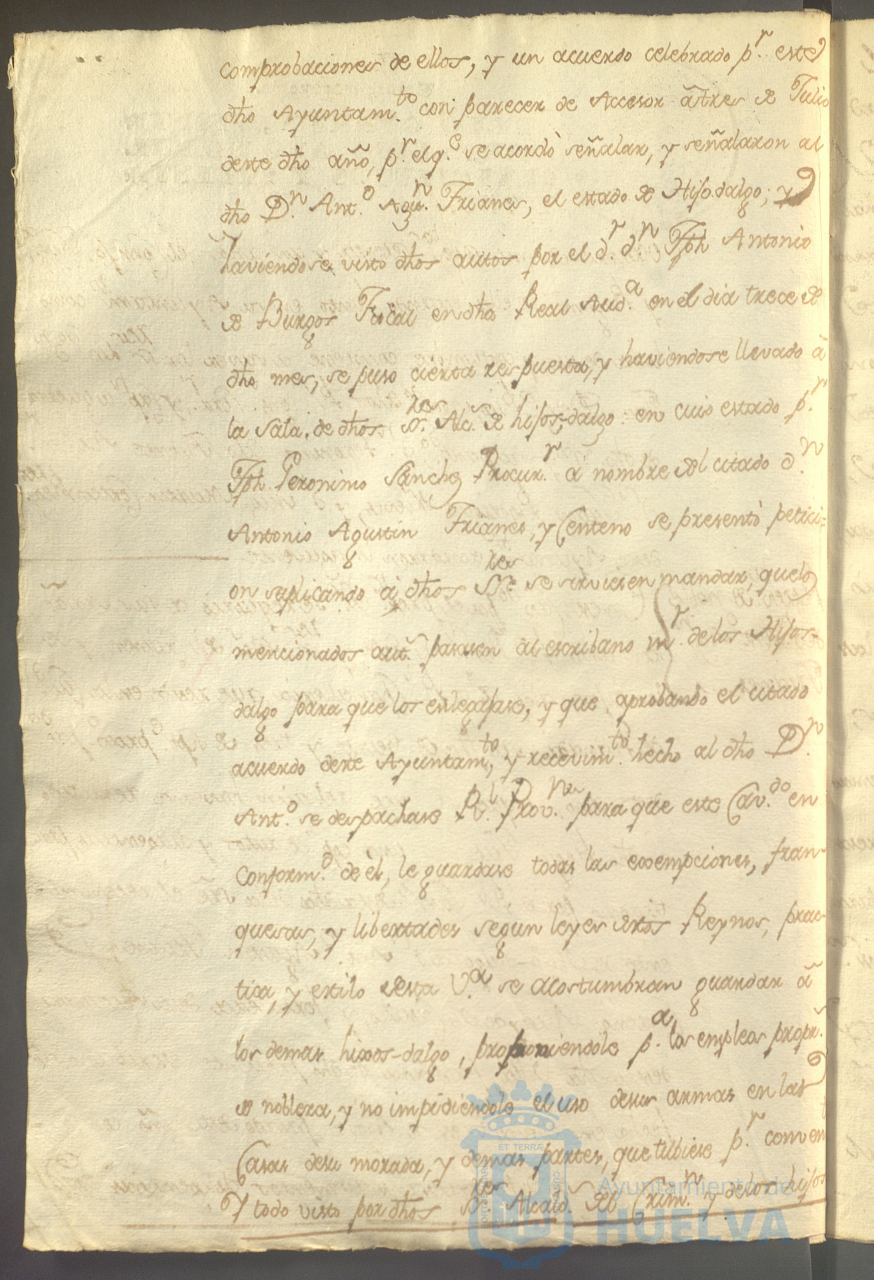 comprobaciones de ellos, y un acuerdo celebrado p.r este
dho Ayuntam.to con parecer de Accesor â tres de Julio
deste dho año, p.r el q.e se acordò señalar, y señalaron al
dho D.n Ant.o Agu.n Frianes, el estado de Hijodalgo; y
haviendose visto dhos autos por el d.r d.n Jph Antonio
de Burgos Fiscal en dha Real Aud.a en el dia trece de
dho mes, se puso cierta respuesta, y haviendose llevado â
la sala, de dhos S.res Alc.s de hijos-dalgo: en cuio estado p.r
Jph. Geronimo Sanchez Procur.r a nombre del citado d.n
Antonio Agustin Frianes, y Centeno se presentò petici-
on suplicando a dhos S.res se sirviesen mandar, que los
mencionados aut.s pasasen al escribano m.r de los Hijos-
dalgo para que los enlegajase, y que aprobando el citado
acuerdo deste Ayuntam.to, y recevim.to hecho al dho D.n
Ant.o se despachase R.l Prov.n para que este Cav.do en
Conform.d de èl, le guardase todas las exempciones, fran-
quesas, y libertades segun leyes destos Reynos, prac-
tica, y estilo desta V.a se acostumbran guardar â
los demas hixos-dalgo, proponiendole p.a los empleos propr.s
de nobleza, y no impidiendole el uso de sus armas en las
Casas de su morada, y demas partes, que tubiese p.r conven.te
Y todo visto por dhos S.res Alcald.s del Crim.n y de los hijos
ET TERRÆ
Ayuntamiento de
HUELVA